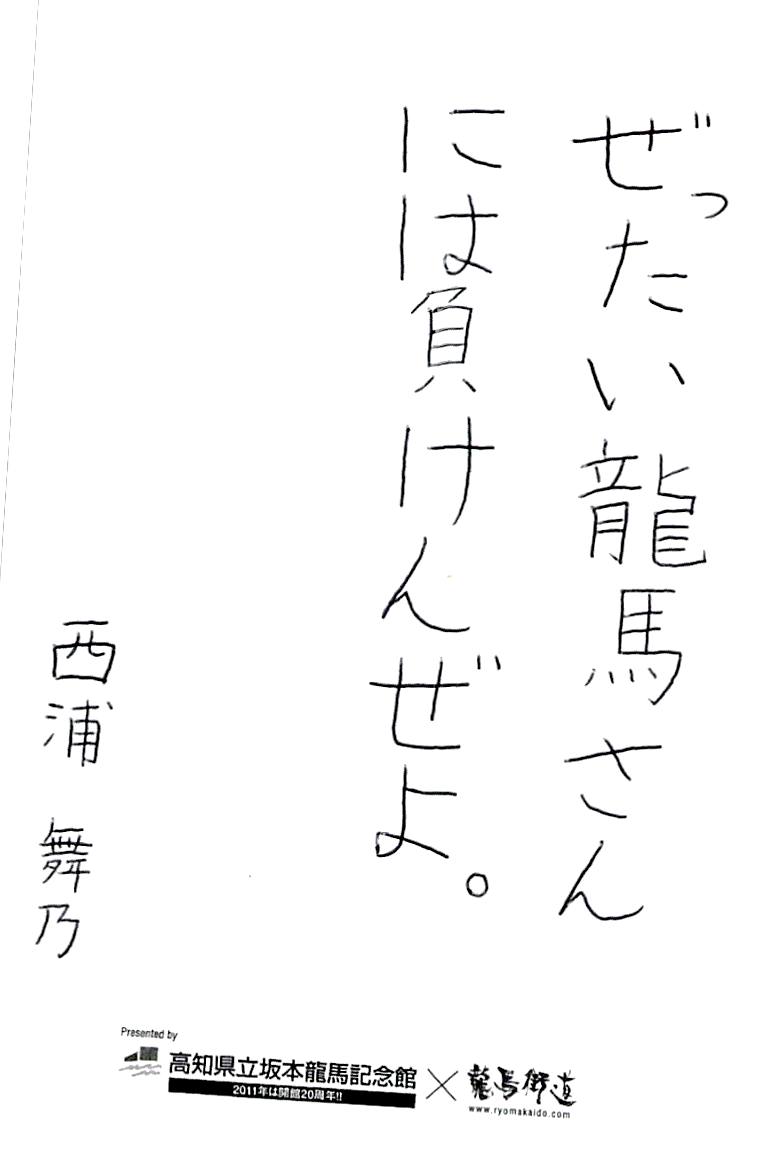 ぜったい龍馬さん
には負けんぜよ。
西浦 舞乃
Presented by
高知県立坂本龍馬記念館
2011年は開館20周年!!
×
龍馬街道
www.ryomakaido.com